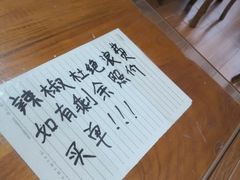 辣椒杜绝浪费
如有剩余照价
买单!!!